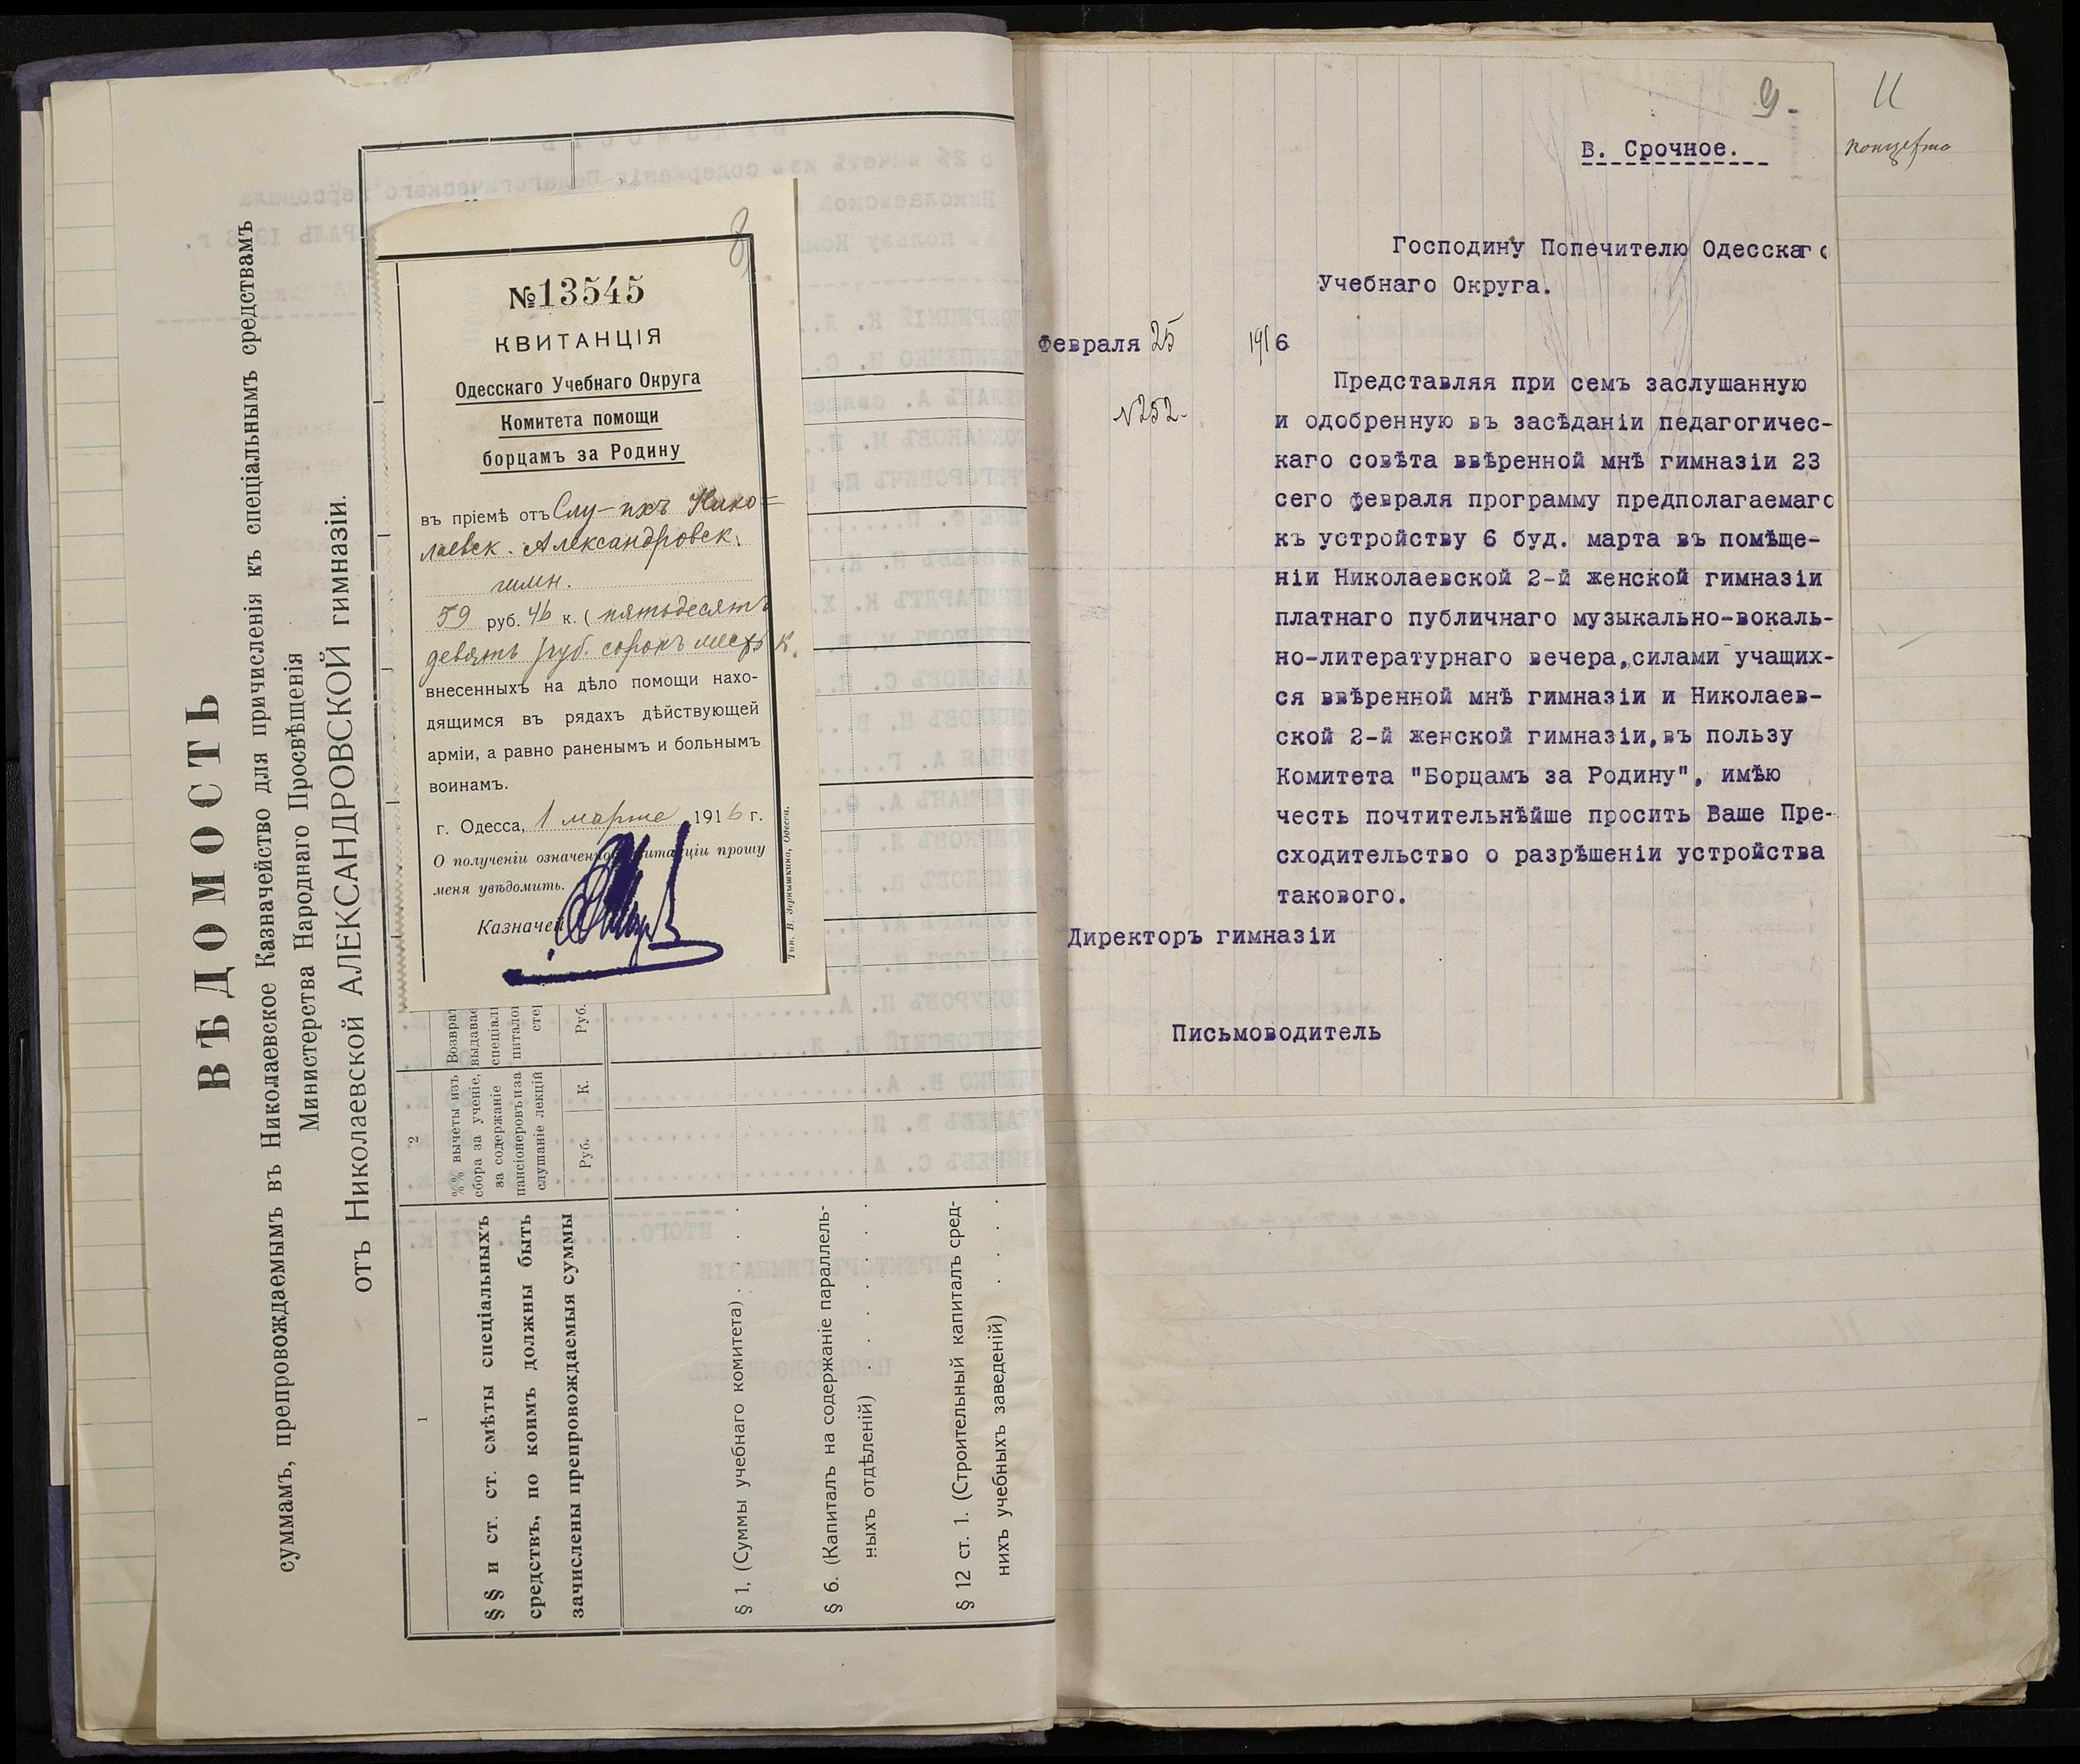 ВѢДОМОСТЬ
суммамъ, препровождаемымъ въ Николаевское Казначейство для причисленія къ спеціальнымъ средствамъ
Министерства Народнаго Просвѣщенія
отъ Николаевской АЛЕКСАНДРОВСКОЙ гимназіи.
1
§§ и ст. ст. смѣты спеціальныхъ
средствъ, по коимъ должны быть
зачислены препровождаемыя суммы
2
%% вычеты изъ
сбора за ученіе,
за содержаніе
пансіонеровъ и за
слушаніе лекцій
Руб.
К.
Возврат
выдавае
спеціалі
питало
сте
Руб.
§ 1, (Суммы учебнаго комитета) . . . .
§ 6. (Капиталъ на содержаніе параллель-
ныхъ отдѣленій) . . . . . .
§ 12 ст. 1. (Строительный капиталъ сред-
нихъ учебныхъ заведеній) . . . .
8
№13545
КВИТАНЦІЯ
Одесскаго Учебнаго Округа
Комитета помощи
борцамъ за Родину
въ пріемѣ отъ Слу-ихъ Нико=
лаевск. Александровск.
гимн.
59 руб. 46 к. (пятьдесятъ
девять руб. сорокъ шесть к.
внесенныхъ на дѣло помощи нахо-
дящимся въ рядахъ дѣйствующей
арміи, а равно раненымъ и больнымъ
воинамъ.
г. Одесса, 1 марта 1916 г.
О полученіи означенной квитанціи прошу
меня увѣдомить.
Казначей
Тип. В. Зернышкина, Одесса.
9
11
В. Срочное.
Господину Попечителю Одесскаго
Учебнаго Округа.
Февраля 25 1916
№252-
Представляя при семъ заслушанную
и одобренную въ засѣданіи педагогичес-
каго совѣта ввѣренной мнѣ гимназіи 23
сего февраля программу предполагаемаго
къ устройству 6 буд. марта въ помѣще-
ніи Николаевской 2-й женской гимназіи
платнаго публичнаго музыкально-вокаль-
но-литературнаго вечера,силами учащих-
ся ввѣренной мнѣ гимназіи и Николаев-
ской 2-й женской гимназіи,въ пользу
Комитета "Борцамъ за Родину", имѣю
честь почтительнѣйше просить Ваше Пре-
сходительство о разрѣшеніи устройства
такового.
Директоръ гимназіи
Письмоводитель